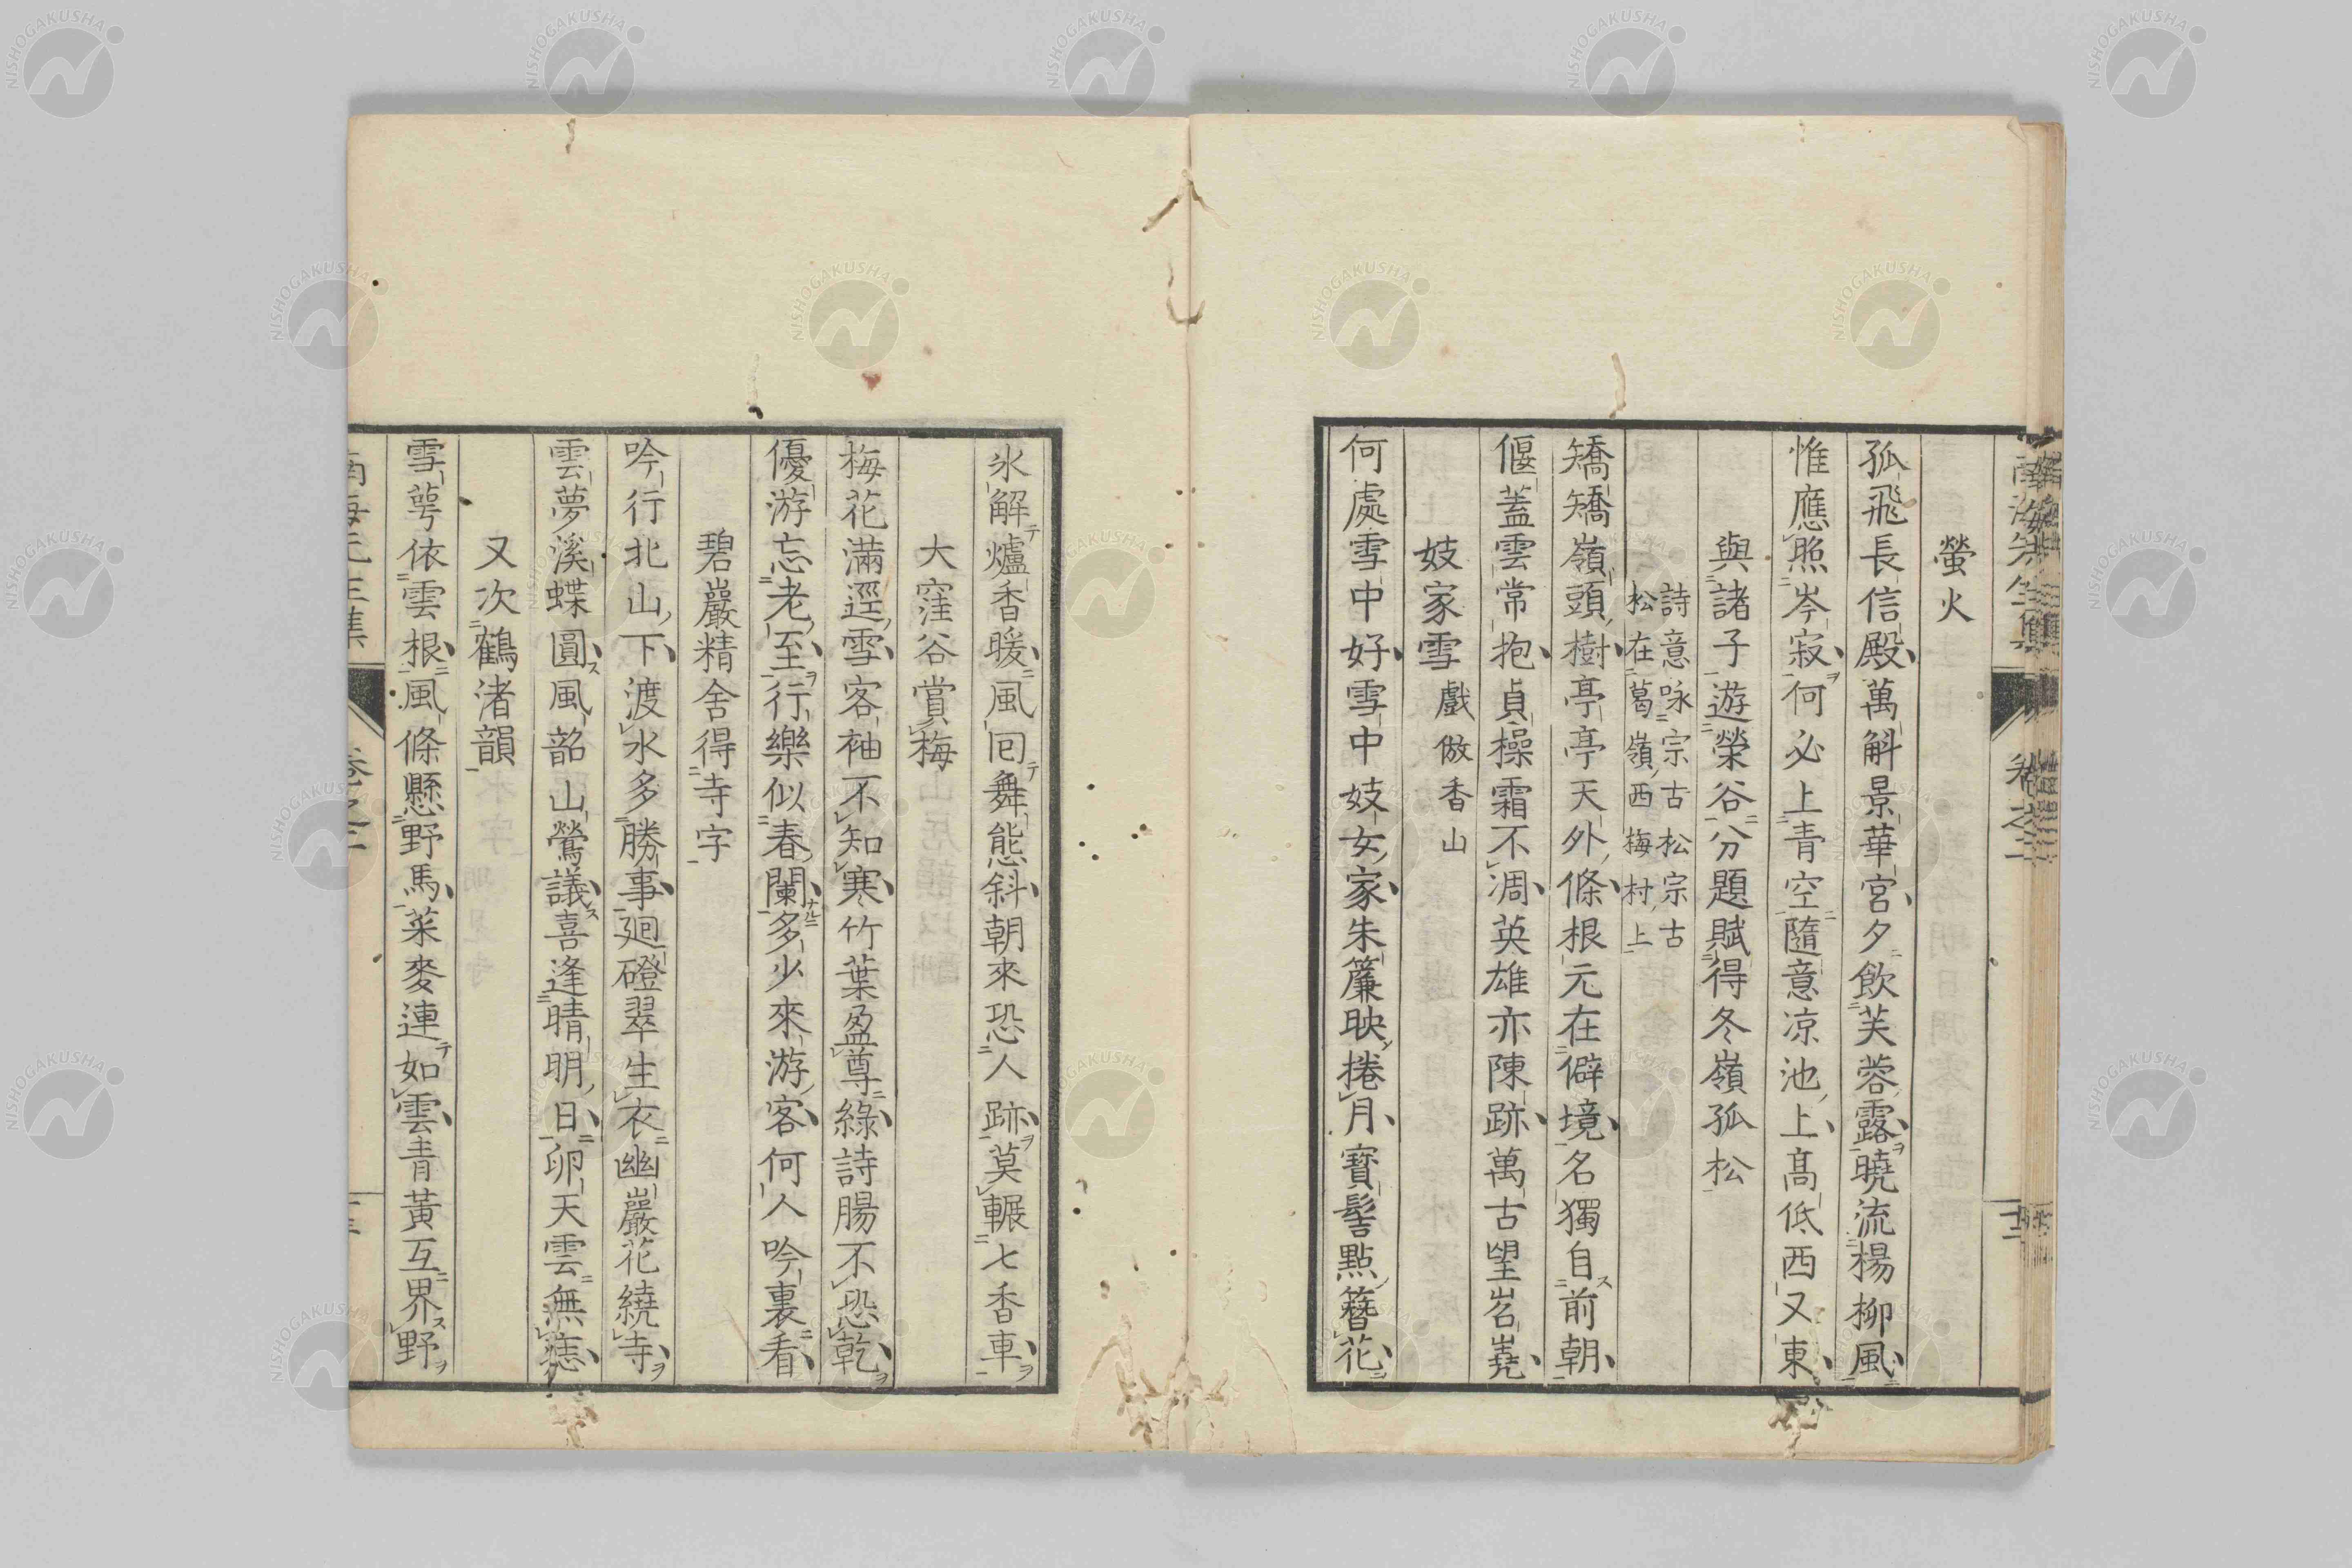 螢火
孤飛長信殿萬斛景華宮夕飲芙蓉露曉流楊柳風
惟應照岑寂何必上青空隨意凉池上高低西又東
與諸子遊榮谷分題賦得冬嶺孤松
詩意咏宗古松宗古
松在葛嶺西梅村上
矯矯嶺頭樹亭亭天外條根元在僻境名獨自前朝
偃蓋雲常抱貞操霜不凋英雄亦陳跡萬古望岧嶤
妓家雪 戲倣香山
何處雪中好雪中妓女家朱簾映捲月寳髻點簪花
氷解爐香暖風回舞態斜朝來恐人跡莫輾七香車
大窪谷賞梅
梅花滿逕雪客袖不知寒竹葉盈尊綠詩腸不恐乾
優游忘老至行樂似春闌多少來游客何人吟裏看
碧巖精舍得寺字
吟行北山下渡水多勝事廻磴翠生衣幽巖花繞寺
雲夢溪蝶圓風韶山鶯議喜逢晴明日卵天雲無痣
又次鶴渚韻
雪萼依雲根風條懸野馬菜麥連如雲青黃互界野
NISHOGAKUSHA